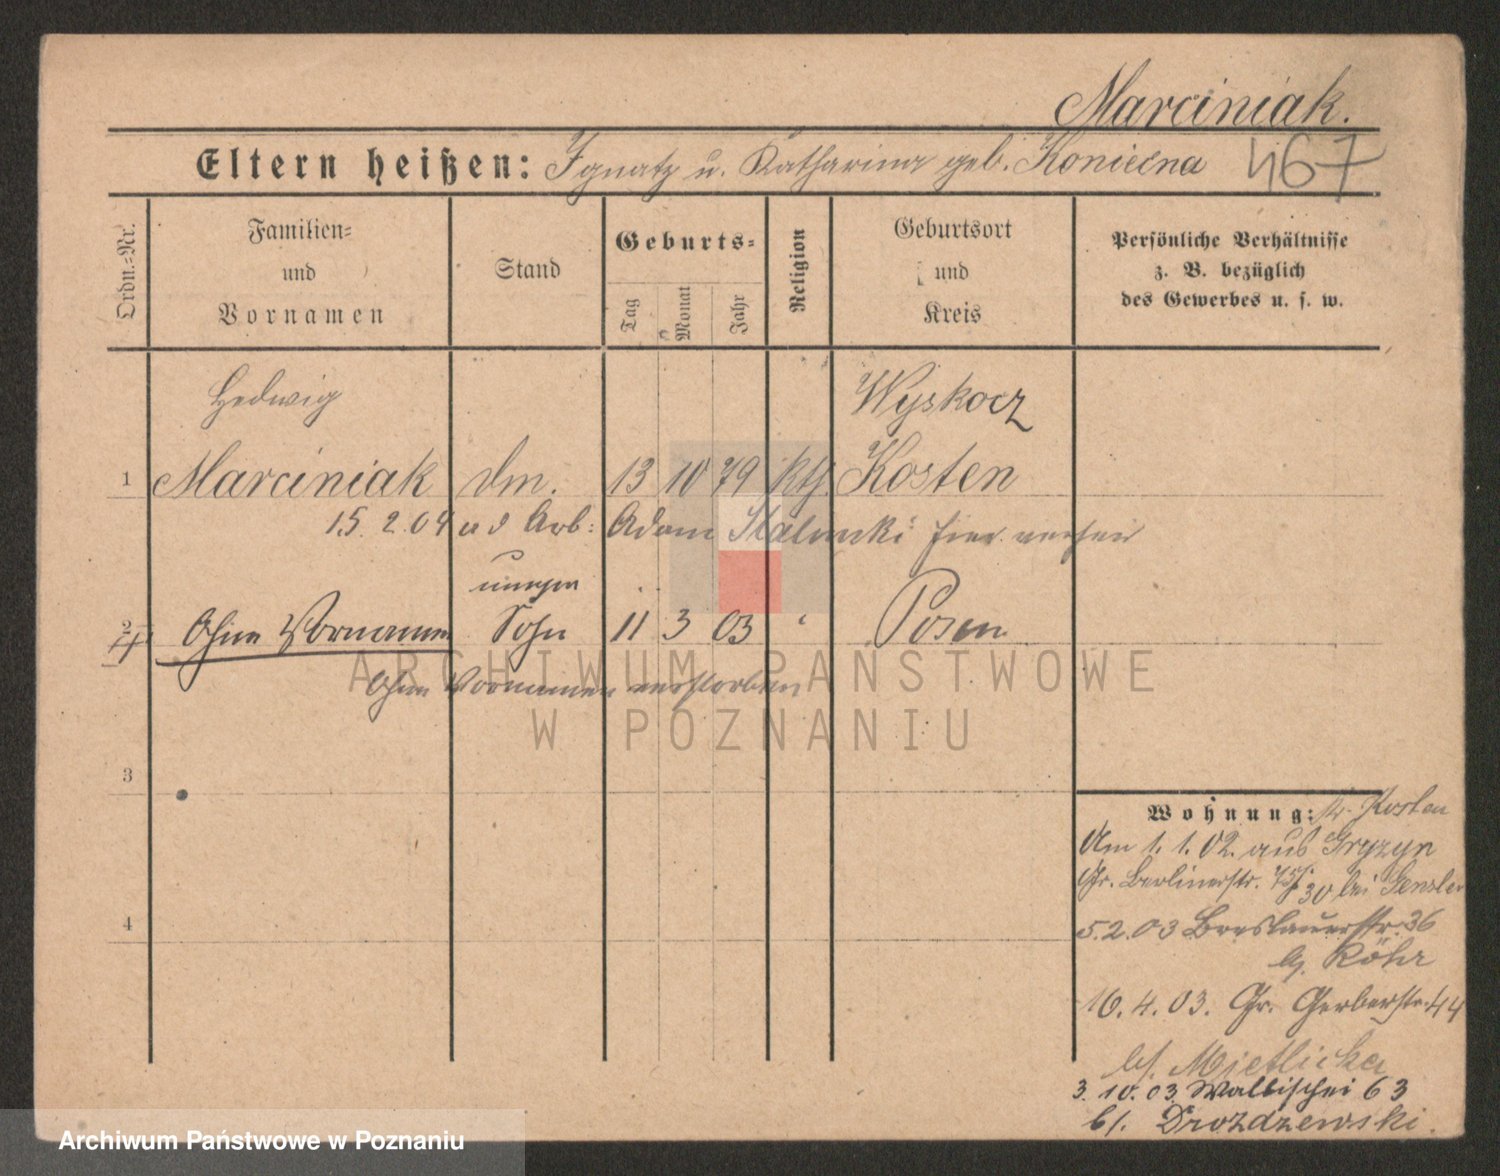 Marciniak.
Eltern heißen: Ignatz u. Katharina geb. Koniecna 467
Ordn.-Nr.
Familien-
und
Vornamen
Stand
Geburts-
Tag
Monat
Jahr
Religion
Geburtsort
und
Kreis
Persönliche Verhältnisse
z. B. bezüglich
des Gewerbes u. s. w.
Hedwig Wyskocz
1 Marciniak dm. 13 10 79 kth. Kosten
15. 2. 04 a d Arb: Adam hier
2 Ohne Vornamen Sohn 11 3 03 " Posen
Ohne Vornamen verstorben
ARCHIWUM PAŃSTWOWE
W POZNANIU
3
4
Wohnung: Kr. Kosten
Am 1. 1. 02. aus Gryzyn
Gr. Berlinerstr. 30 bei Genzler
5. 2. 03 Breslauerstr. 36
bj. Röhr
16. 4. 03. Gr. Gerberstr. 44
bj. Mietlicka
3. 10. 03. Wallischei 63
bj. Drozdzewski.
Archiwum Państwowe w Poznaniu